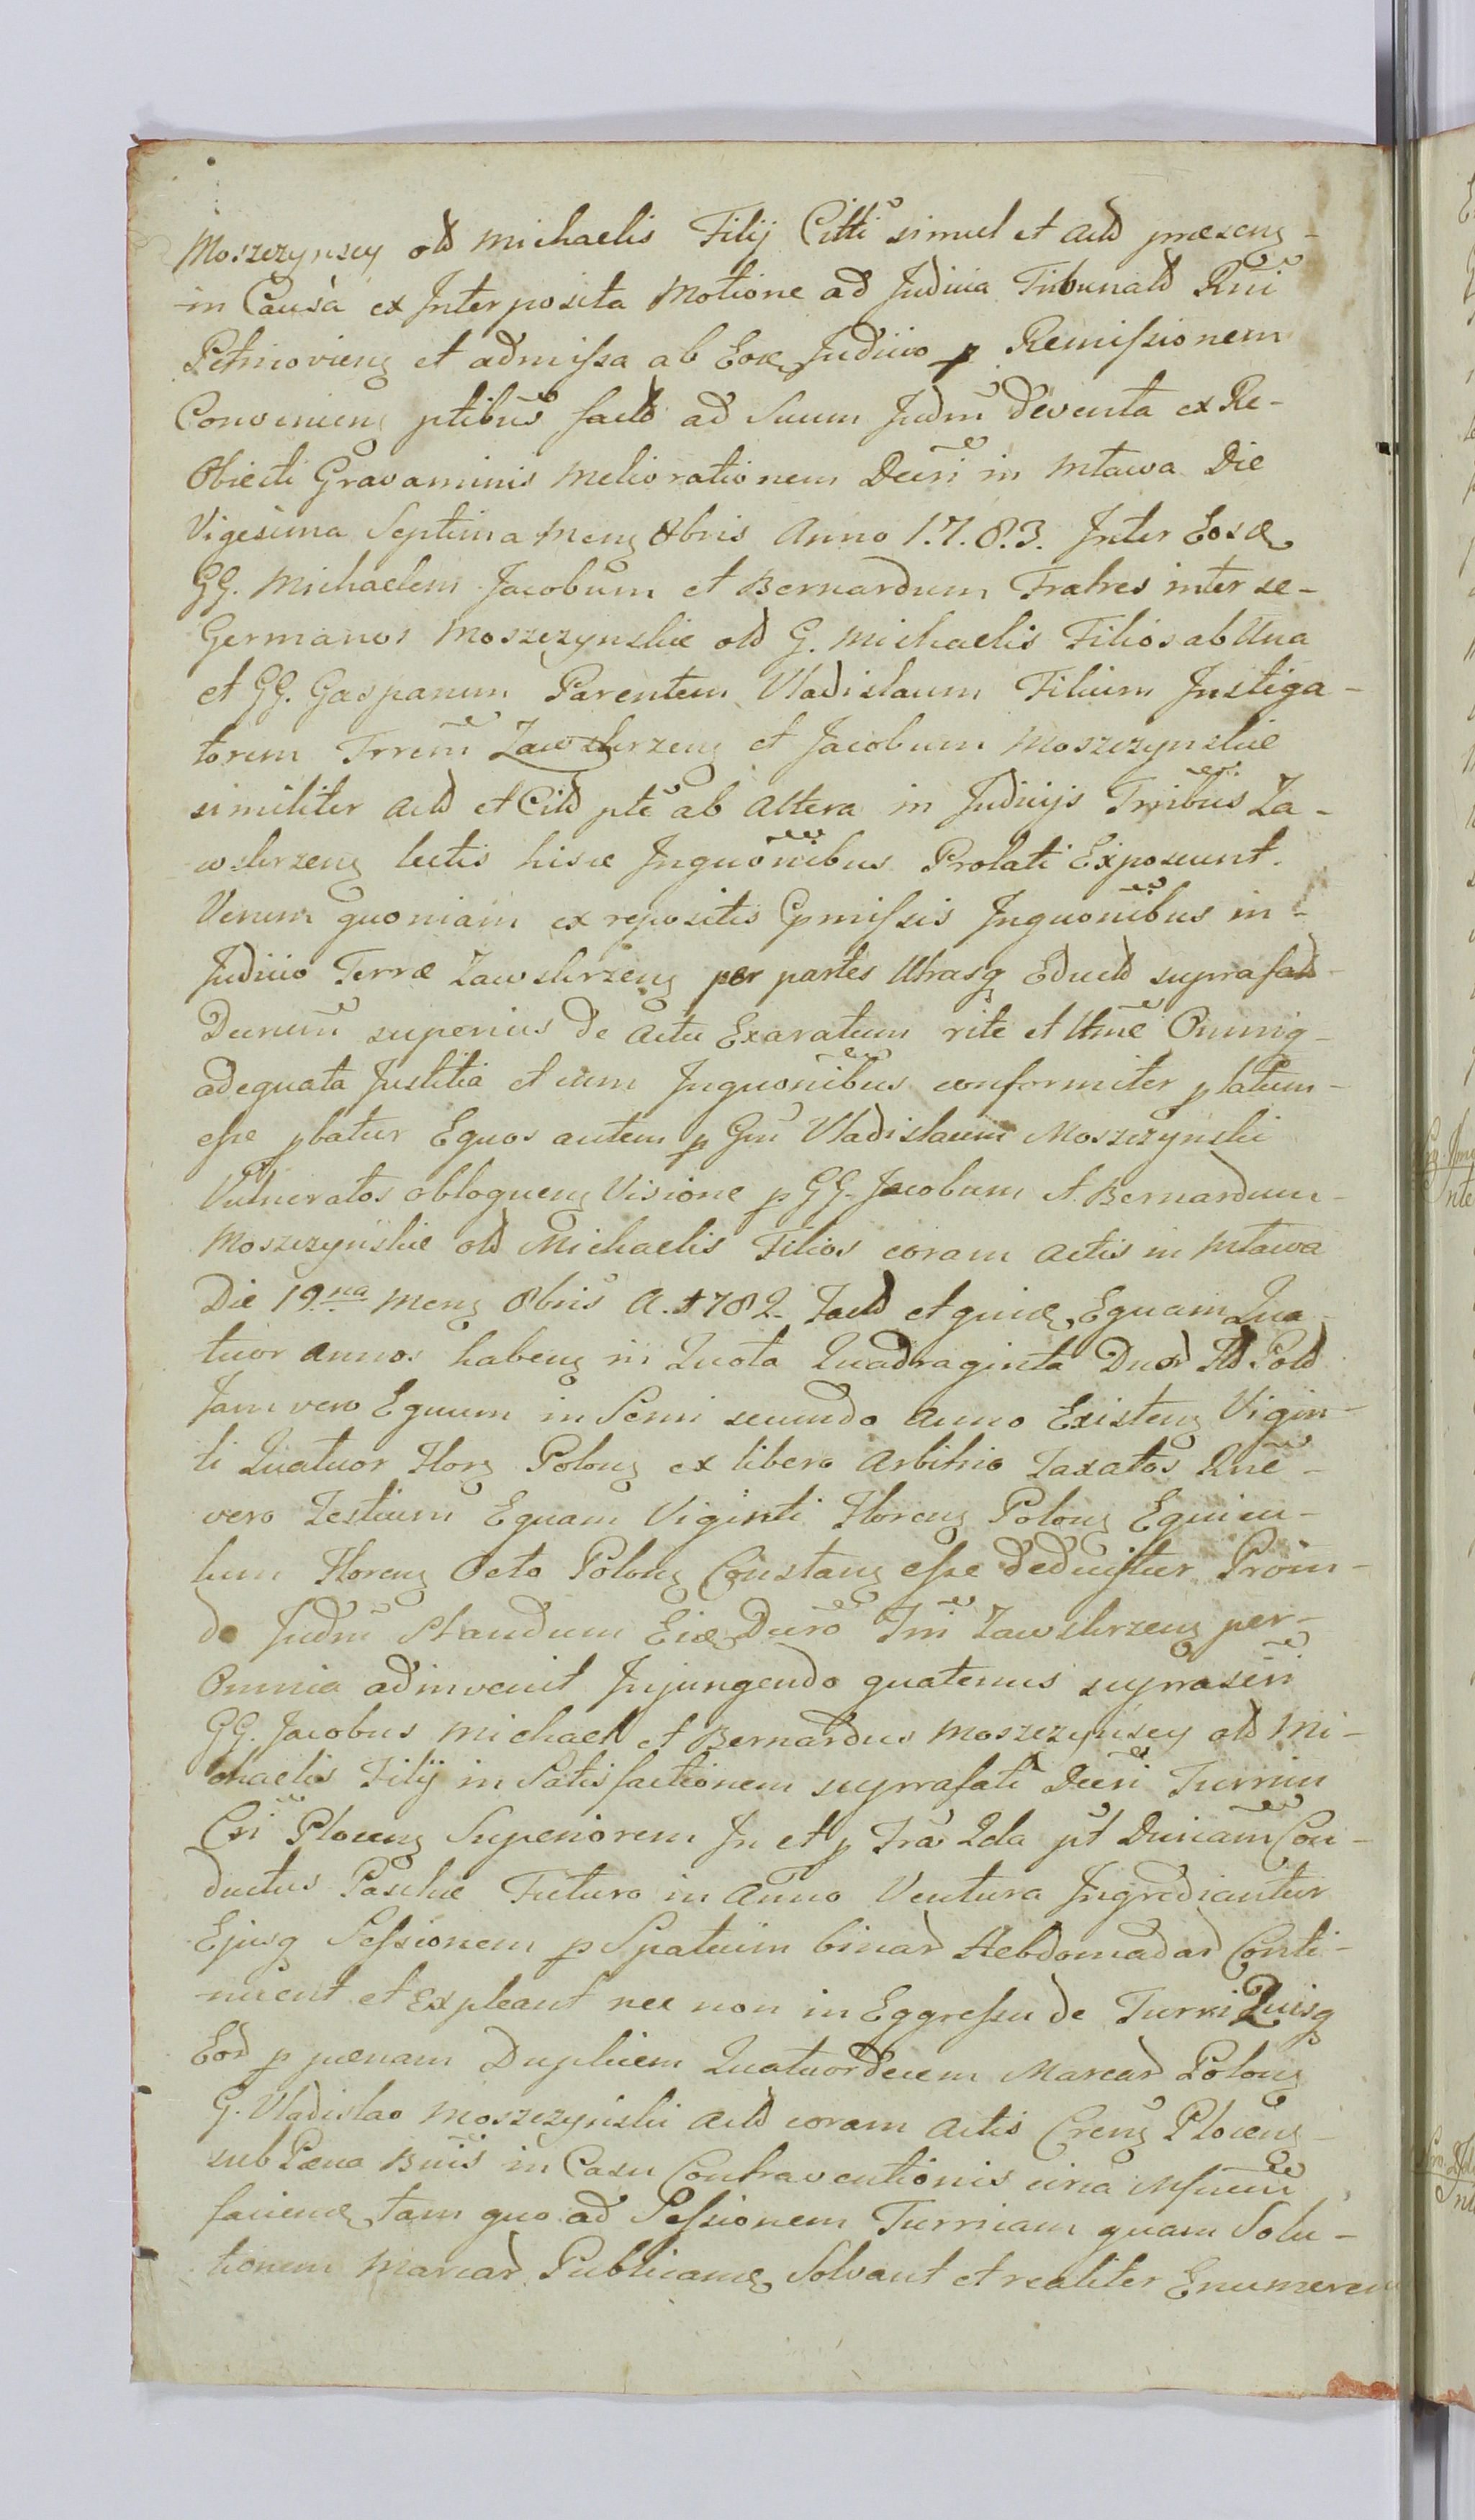 Moszczynscy old Michaelis Filij Citti simul et Actd præsens
in Causa ex Interposita Motione ad Judicia Tribunald Rni
Petricoviens et admissa ab Eoq Judicio p Remissionem
Conveniens ptibus factd ad Suum Judm deventa ex Re-
Obiecti Gravaminis Meliorationem Decri in Mława Die
Vigesima Septima Mens 8bris Anno 1.7.8.3. Inter Eosd
GG. Michaelem Jacobum et Bernardum Fratres inter se-
Germanos Moszczynskie old G. Michaelis Filios ab Una
et GG. Gasparum Parentem Vladislaum Filium Instiga-
torem Trrem Zawskrzens et Jacobum Moszczynskie
similiter Actd et Citd pte ab Altera in Judicijs Trribus Za-
wskrzens lectis hisce Inquonibus Prolati Exposcunt.
Verum quoniam ex repositis Ppmissis Inquonibus in-
Judicio Terræ Zawskrzens per partes Utrasq Eductd suprafatd
Decrum superius de Actu Exaratum rite et Ltme Omniq-
adequata Justitia et cum Inquonibus conformiter platum-
esse pbatur Equos autem p Gm Vladislaum Moszczynski
Vulneratos obloquens Visione p GG. Jacobum et Bernardum-
Moszczynskie old Michaelis Filios coram Actis in Mława
Die 19na Mens 8bris A. 1782. Factd et quidq Equam Qua
tuor annos habens in Quota Quadraginta Duor Fld Pold
Jam vero Equum in Semi secundo Anno Existens Vigin-
ti Quatuor Flors Polons ex libero Arbitrio Taxatos Rne-
vero Testium Equam Viginti Florens Polons Equicu-
lum Florens Octo Polons Constans esse deducitur Proin-
de Judm Standum Eidq Decro Trri Zawskrzens per-
Omnia adinvenit Injungendo quatenus suprascri
GG. Jacobus Michael et Bernardus Moszczynscy old Mi-
chaelis Filij in Satisfactionem suprafati Decri Turrim
Csri Plocens Superiorem In et p Fra 2da pt Dnicam Con-
ductus Paschæ Futuro in Anno Ventura Ingrediantur
Ejusq Sessionem p Spatium binar Hebdomadar Conti-
nuent et Expleant nec non in Eggressu de Turri Quisq
Eor p pænam Duplicem Quatuordecem Marcar Polons
G. Vladislao Moszczynski Actd coram Actis Crens Plocens-
sub Pæna Bnis in Casu Contraventionis circa
faciend tam quo ad Sessionem Turriam quam Solu-
tionem Marcar Publicand Solvant et realiter Enumerent